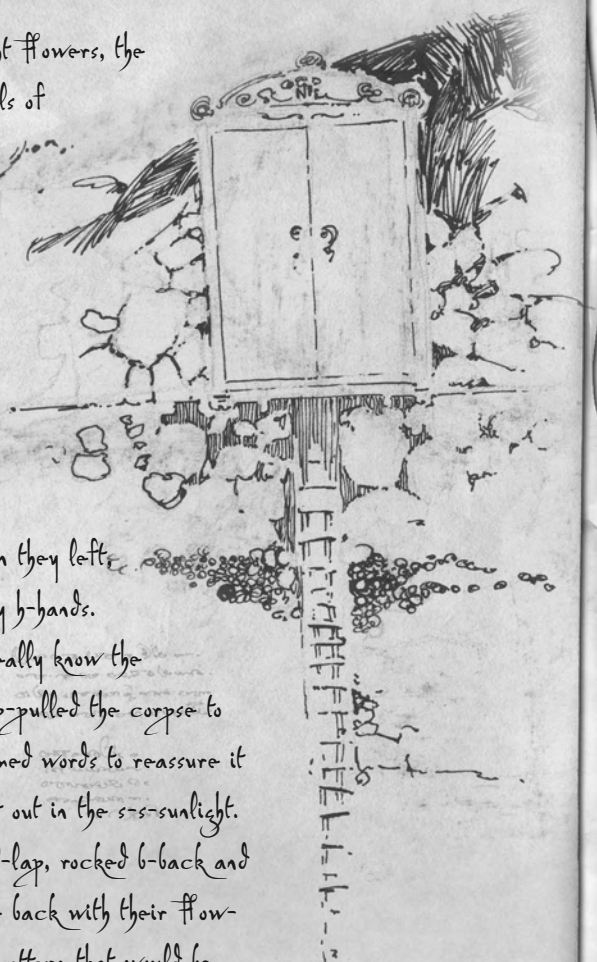 t flowers, the
ls of
n they left,
y h-hands.
-ally know the
p-pulled the corpse to
med words to reassure it
r out in the s-s-sunlight.
l-lap, rocked b-back and
back with their flow-
that would be